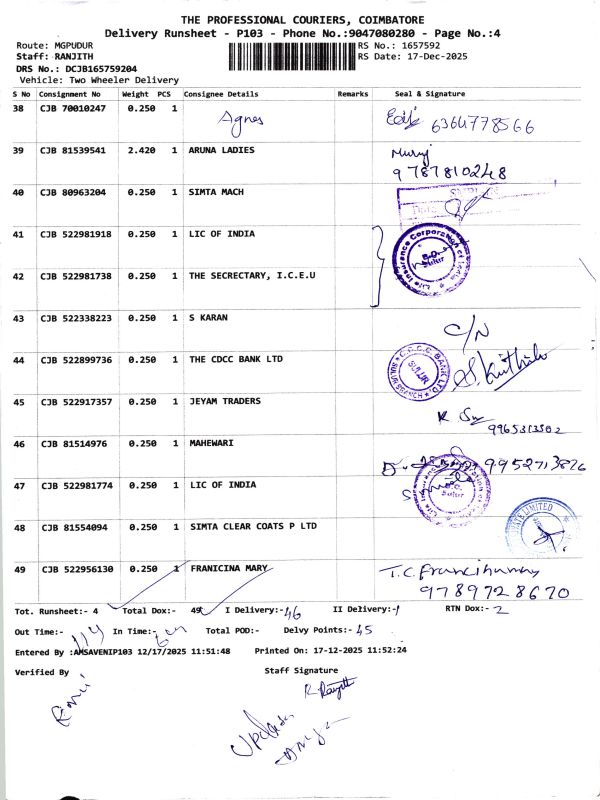 THE PROFESSIONAL COURIERS, COIMBATORE
Delivery Runsheet - P103 - Phone No.:9047080280 - Page No.:4
Route: MGPUDUR RS No.: 1657592
Staff: RANJITH RS Date: 17-Dec-2025
DRS No.: DCJB165759204
Vehicle: Two Wheeler Delivery
S No Consignment No Weight PCS Consignee Details Remarks Seal & Signature
38 CJB 70010247 0.250 1 Agnes 6364778566
39 CJB 81539541 2.420 1 ARUNA LADIES Muruj
9787810248
40 CJB 80963204 0.250 1 SIMTA MACH
41 CJB 522981918 0.250 1 LIC OF INDIA
Life Insurance Corporation of India
Sulur
42 CJB 522981738 0.250 1 THE SECRECTARY, I.C.E.U
43 CJB 522338223 0.250 1 S KARAN C/N
44 CJB 522899736 0.250 1 THE CDCC BANK LTD
C.D.C.C. BANK LTD. SULUR BRANCH
SULUR
45 CJB 522917357 0.250 1 JEYAM TRADERS
9965313502
46 CJB 81514976 0.250 1 MAHEWARI 9952713826
47 CJB 522981774 0.250 1 LIC OF INDIA
Sulur
48 CJB 81554094 0.250 1 SIMTA CLEAR COATS P LTD
LIMITED
49 CJB 522956130 0.250 1 FRANICINA MARY T.C. Francihumary
9789728670
Tot. Runsheet:- 4 Total Dox:- 49 I Delivery:- 46 II Delivery:- 1 RTN Dox:- 2
Out Time:- 114 In Time:- Total POD:- Delvy Points:- 45
Entered By :AMSAVENIP103 12/17/2025 11:51:48 Printed On: 17-12-2025 11:52:24
Verified By Staff Signature
R. Ranjith
Update